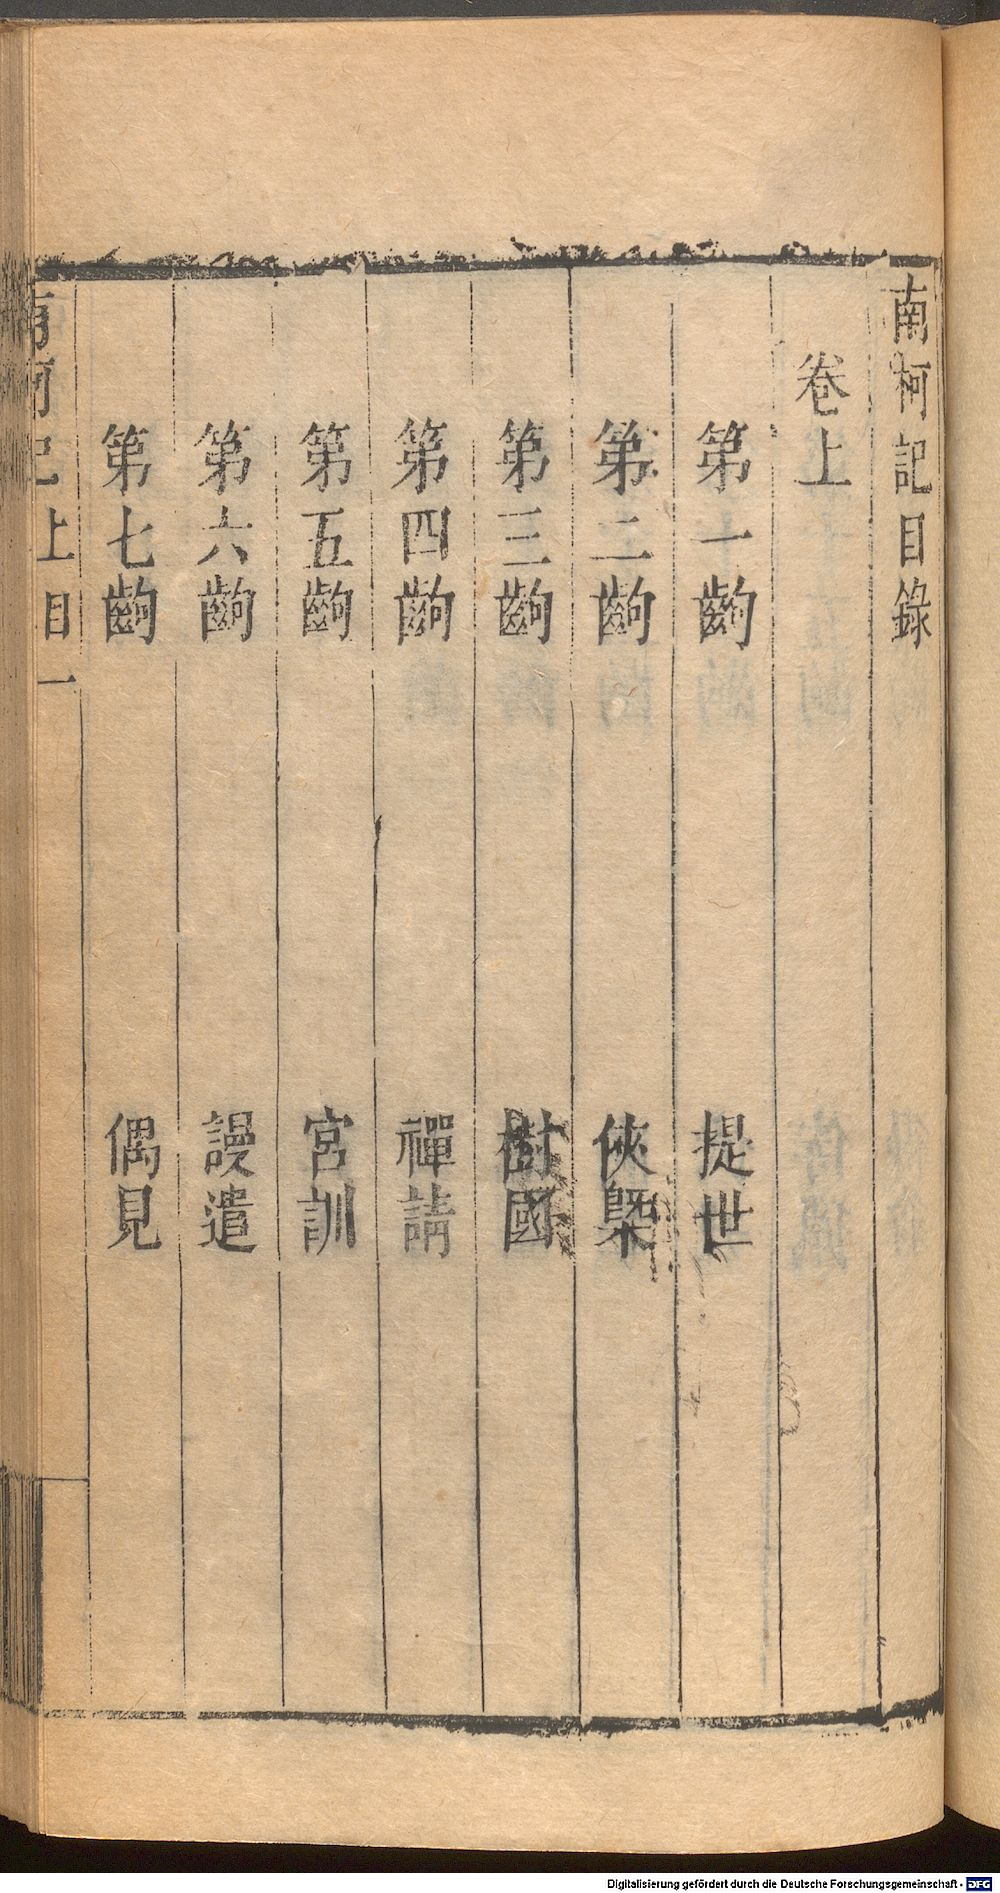 南柯記目錄
卷上
第一齣 提世
第二齣 俠槩
第三齣 樹國
第四齣 禪請
第五齣 宮訓
第六齣 謾遣
第七齣 偶見
南柯記 上目 一
Digitalisierung gefördert durch die Deutsche Forschungsgemeinschaft - DFG